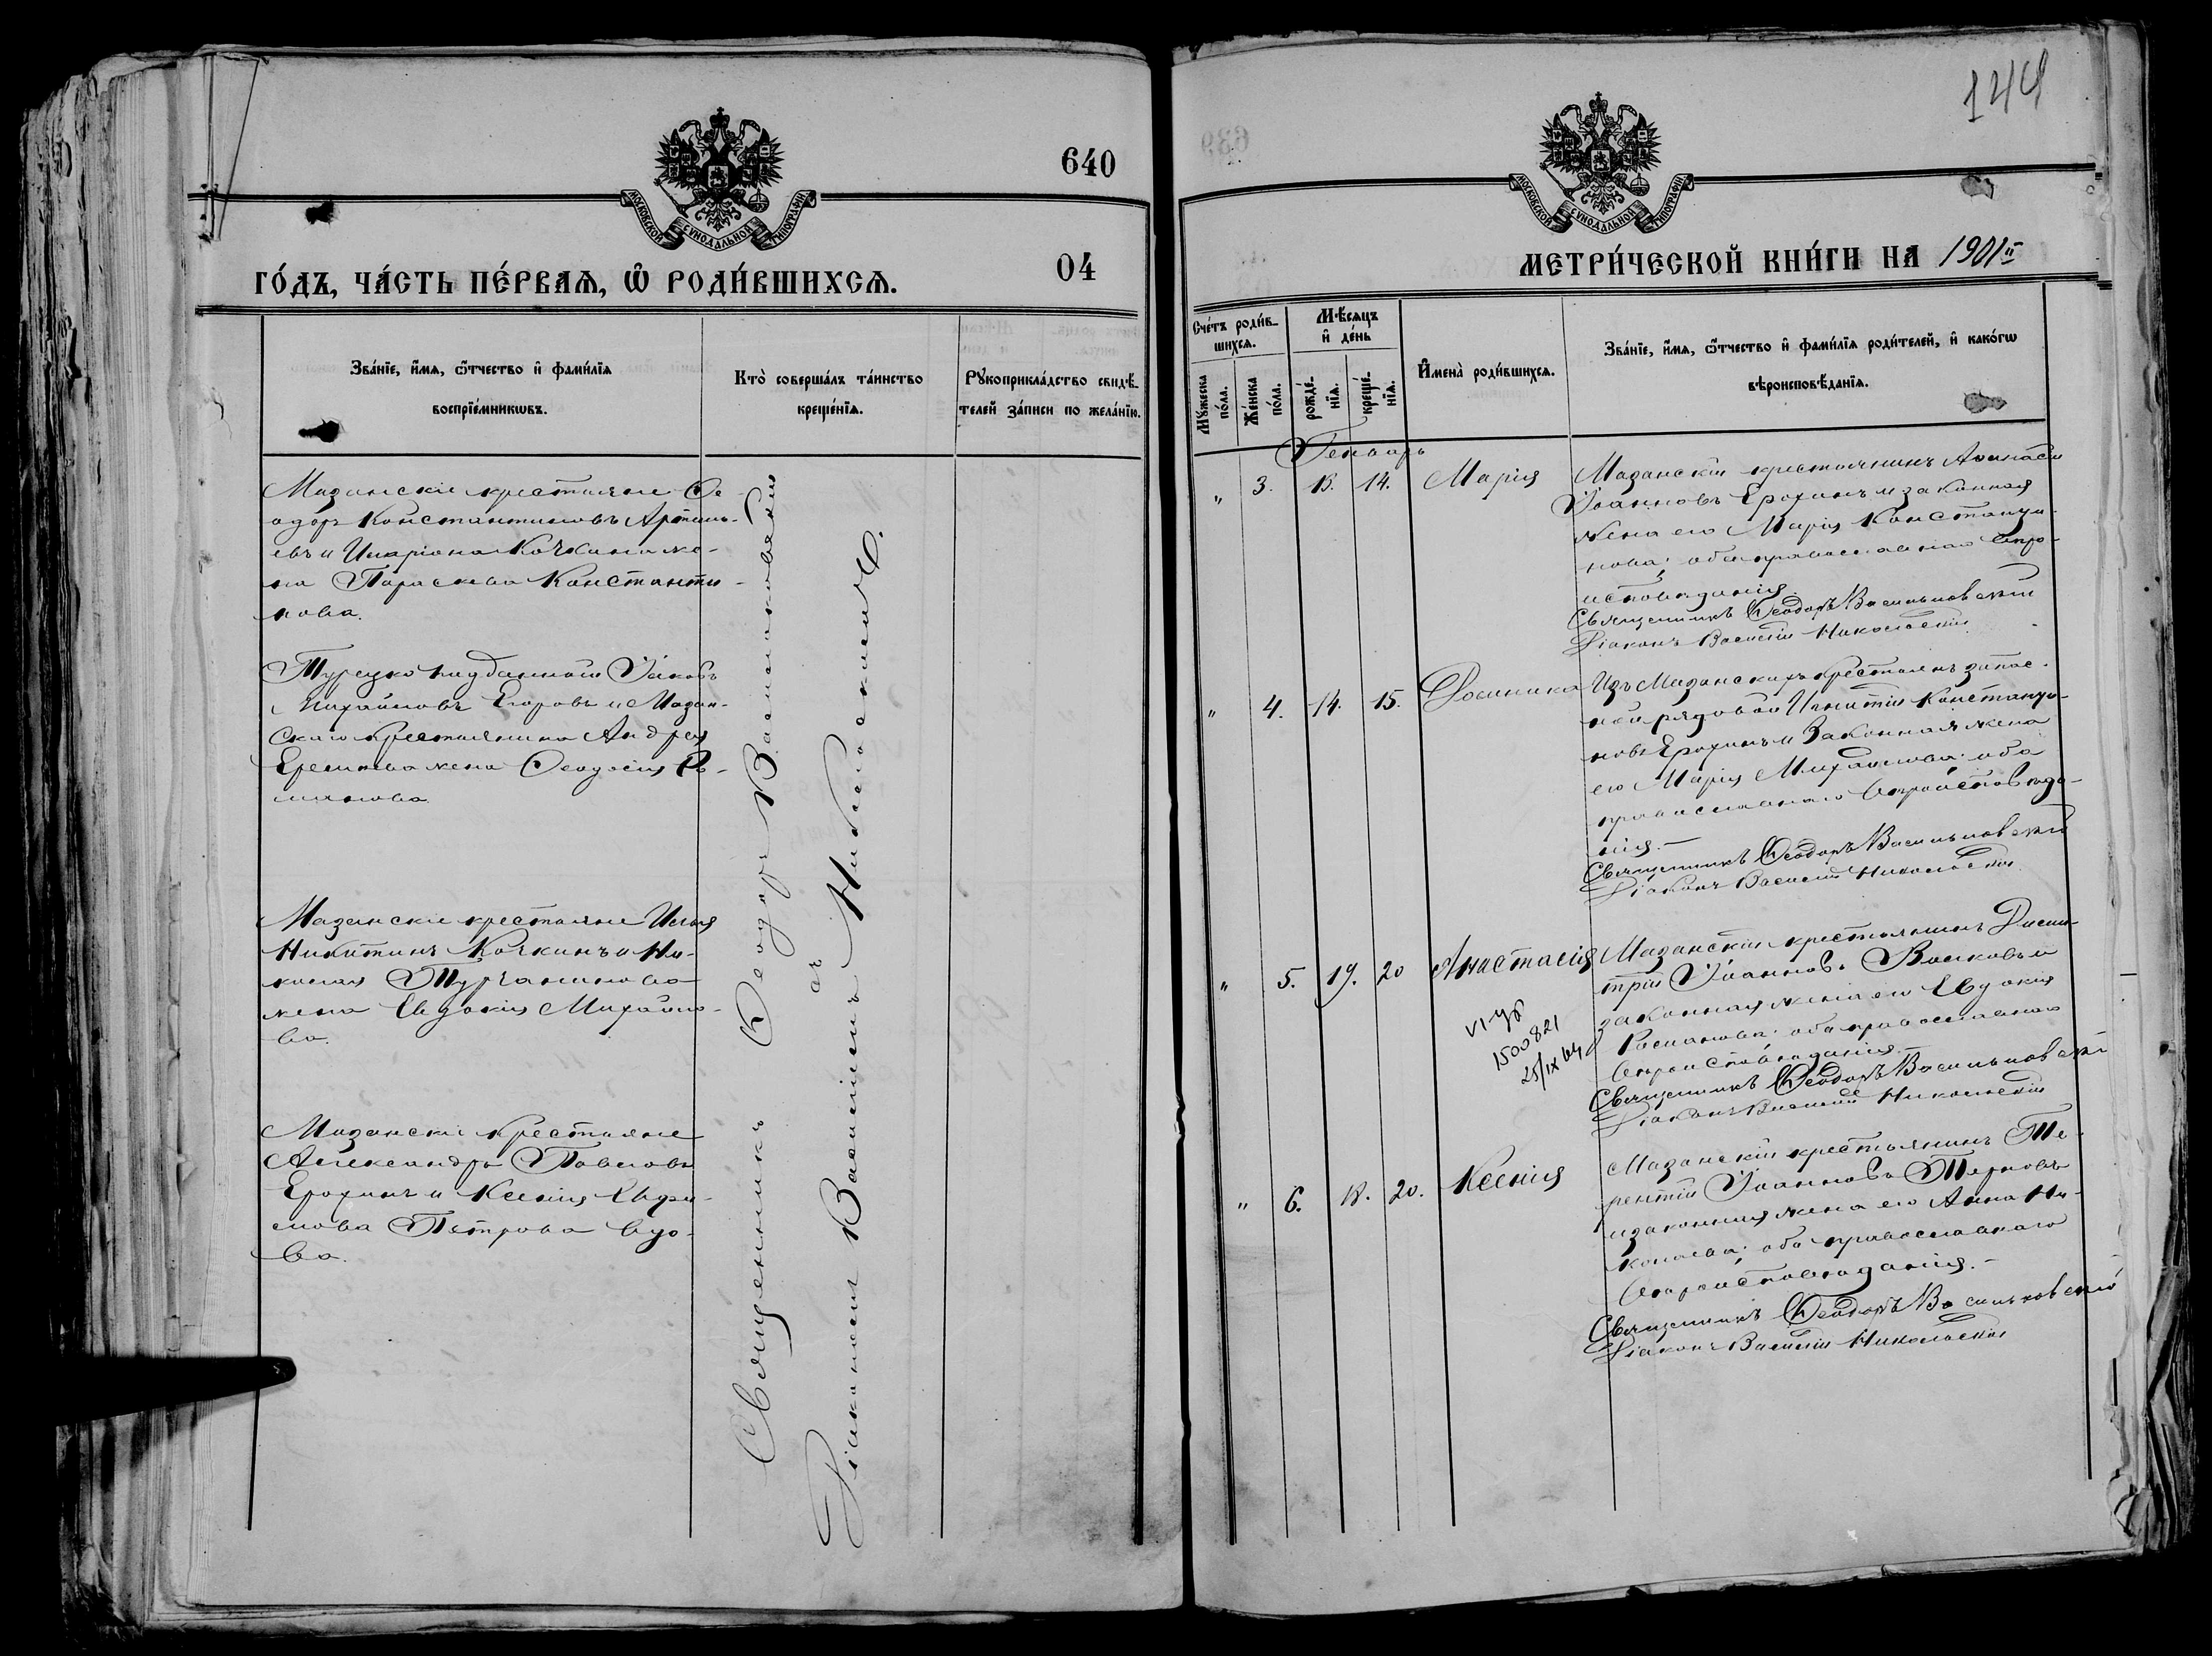 640
МОСКОВСКОЙ СѴНОДАЛЬНОЙ ТИПОГРАФІИ
ГО́ДЪ, ЧА́СТЬ ПЕ́РВАѦ, Ѿ РОДИ́ВШИХСѦ.
04
Зва́нїе, и҆́мѧ, ѻ҆́тчество и҆ фами́лїѧ
воспрїе́мникѡвъ.
Кто̀ соверша́лъ та́инство
креще́нїѧ.
Рꙋкоприкла́дство свидѣ́-
телей за́писи по жела́нїю.
Мазанскіе крестьяне Ѳе-
одоръ Константиновъ
евъ и Иларіона Кочкина же-
на Параскева Константи-
нова.
Турецко подданный Іаковъ
Михайловъ Егоровъ и Мазан-
скаго крестьянина Андрея
жена Ѳеодосія Ро-
манова.
Мазанскіе крестьяне Илья
Никитинъ Кочкинъ и Ни-
колая Турчанинова
жена Евдокія Михайло-
ва.
Мазанскіе крестьяне
Александръ Павловъ
Ерохинъ и Ксенія Ефи-
мова Петрова вдо-
ва.
Священникъ Ѳеодоръ Васильковскій
съ
Діакономъ Василіемъ Никольскимъ.
144
МОСКОВСКОЙ СѴНОДАЛЬНОЙ ТИПОГРАФІИ
МЕТРИ́ЧЕСКОЙ КНИ́ГИ НА 1901й
Сче́тъ роди́в-
шихсѧ.
Мꙋжеска
по́ла.
Же́нска
по́ла.
М҆ѣсѧцъ
и҆ де́нь
рожде́-
нїѧ.
креще́-
нїѧ.
И҆мена̀ роди́вшихсѧ.
Зва́нїе, и҆́мѧ, ѻ҆́тчество и҆ фами́лїѧ роди́телей, и҆ како́гѡ
вѣроисповѣ́данїѧ.
Генварь
" 3. 13. 14. Марія
Мазанскій крестьянинъ Аѳанасій
Іоанновъ Ерохинъ и законная
жена его Марія Константи-
нова; оба православнаго вѣро-
исповѣданія.
Священникъ Ѳеодоръ Васильковскій
Діаконъ Василій Никольскій
" 4. 14. 15. Домника
Изъ Мазанскихъ крестьянъ запас-
ной рядовой Игнатій Константи-
новъ Ерохинъ и законная жена
его Марія Михайлова; оба
православнаго вѣроисповѣда-
нія.-
Священникъ Ѳеодоръ Васильковскій
Діаконъ Василій Никольскій
" 5. 19. 20 Анастасія
Мазанскій крестьянинъ Дими-
трій Іоанновъ Волковъ и
законная жена его Евдокія
Романова; оба православнаго
вѣроисповѣданія.-
Священникъ Ѳеодоръ Васильковскій
Діаконъ Василій Никольскій
1500821
25/IX 64
" 6. 18. 20. Ксенія
Мазанскій крестьянинъ Те-
рентій Іоанновъ Терновъ
и законная жена его Анна Ни-
колаева; оба православнаго
вѣроисповѣданія.-
Священникъ Ѳеодоръ Васильковскій
Діаконъ Василій Никольскій